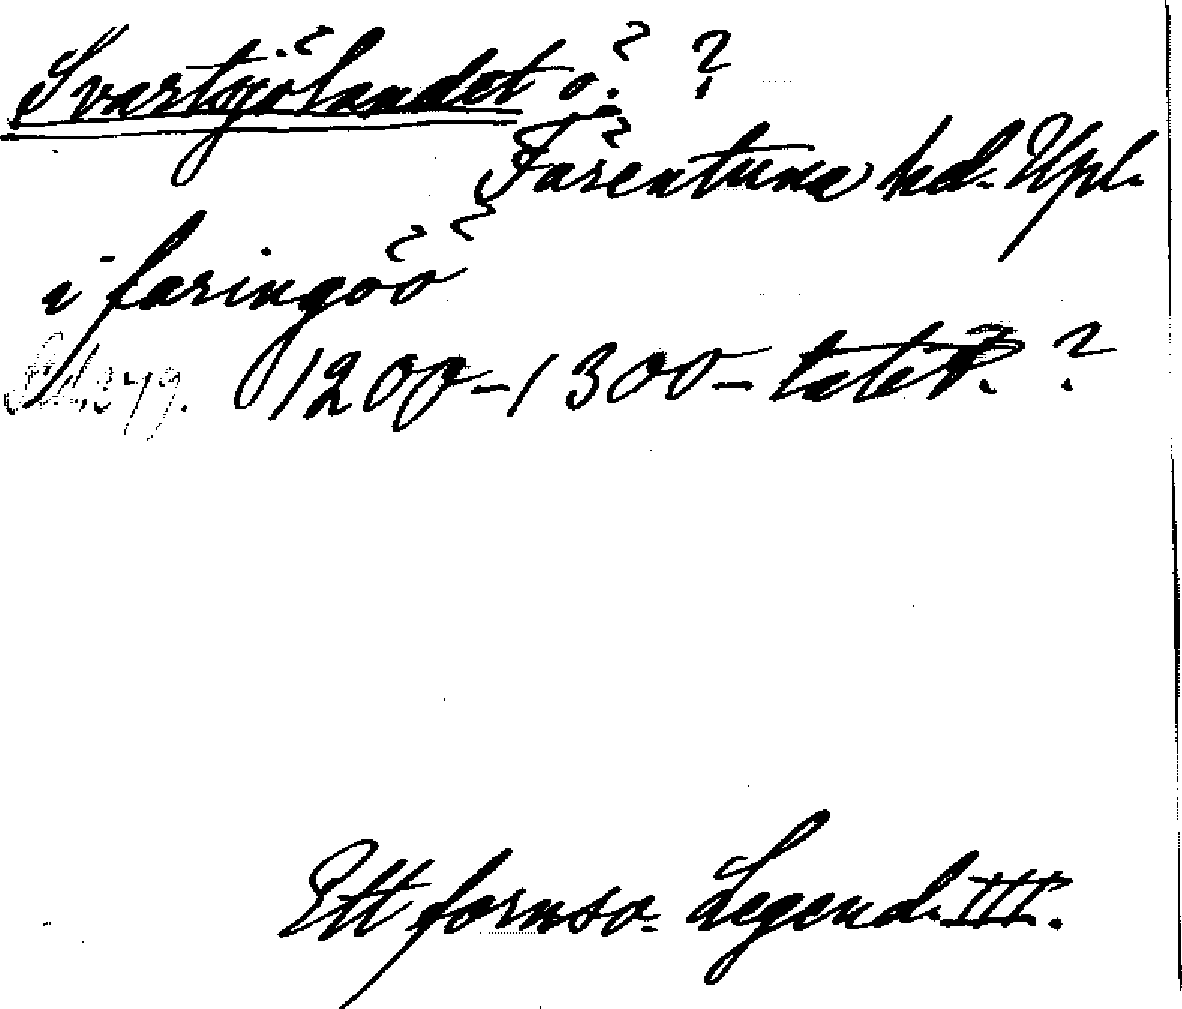 Svartsjölandet ö. ?
Färentuna hd. Upl.
i faringöö
279. 1200-1300-talet. ?
Ett fornsv. Legend. III.